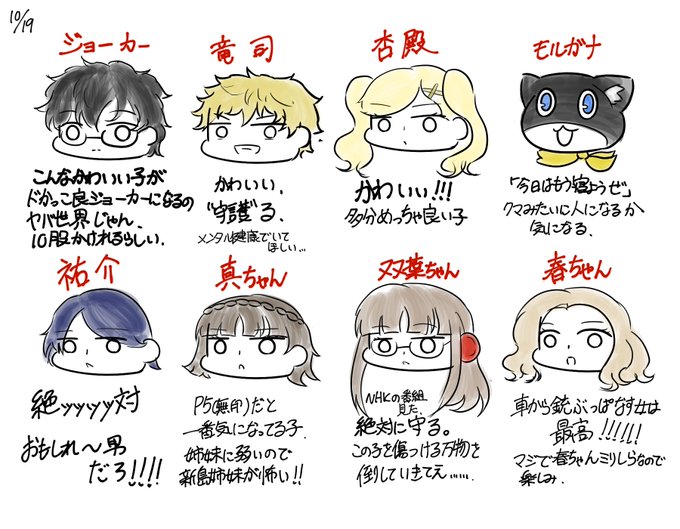 10/19
ジョーカー
こんなかわいい子が
ドかっこ良ジョーカーになるの
ヤバ世界じゃん。
10股かけれるらしい。
竜司
かわいい。
"守護"る。
メンタル健康でいて
ほしい…
杏殿
かわいい!!!
多分めっちゃ良い子
モルガナ
「今日はもう寝ようぜ」
クマみたいに人になるか
気になる。
祐介
絶ッッッッ対
おもしれ〜男
だろ!!!!
真ちゃん
P5(無印)だと
一番気になってる子。
姉妹に弱いので
新島姉妹が怖い!!
双葉ちゃん
NHKの番組
見た。
絶対に守る。
この子を傷つける万物を
倒していきてえ……
春ちゃん
車から銃ぶっぱなす女は
最高!!!!!!
マジで春ちゃんミリしらなので
楽しみ。